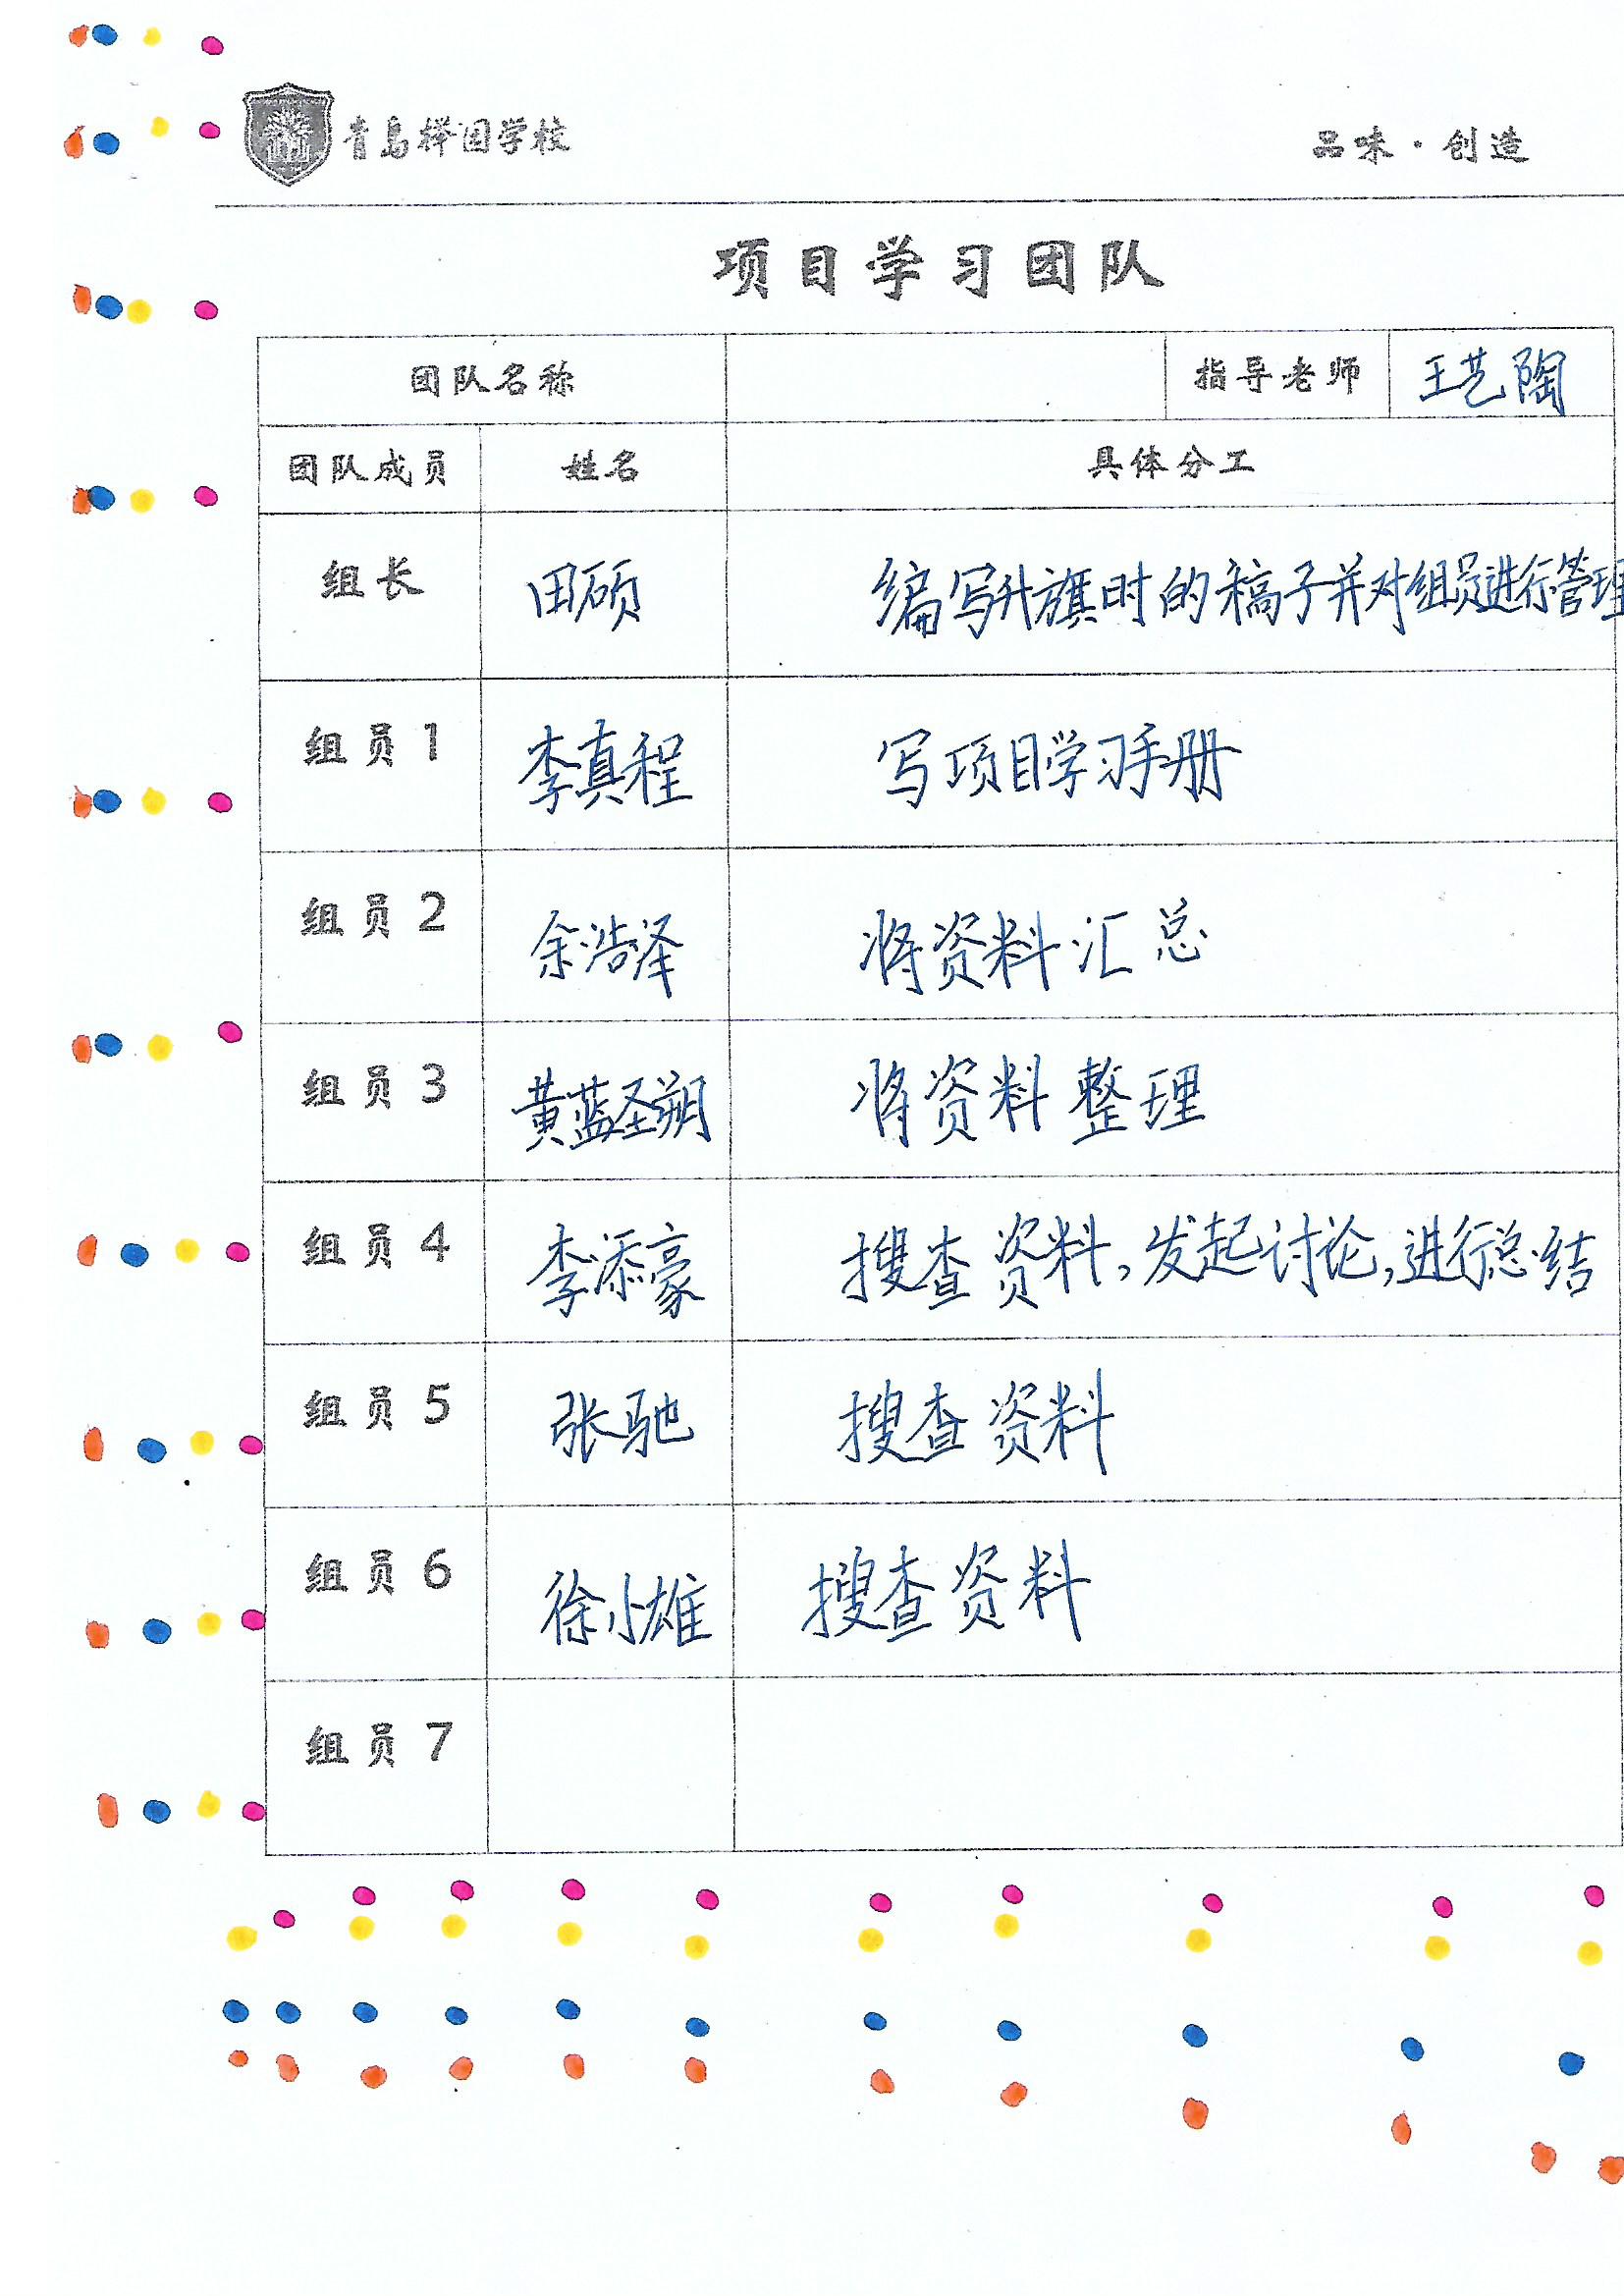 青鸟榉园学校
品味·创造
项目学习团队
团队名称 指导老师 王艺陶
团队成员 姓名 具体分工
组长 田硕 编写升旗时的稿子并对组员进行管理
组员1 李真程 写项目学习手册
组员2 余浩泽 将资料汇总
组员3 黄蓝圣朔 将资料整理
组员4 李添豪 搜查资料,发起讨论,进行总结
组员5 张驰 搜查资料
组员6 徐小雄 搜查资料
组员7